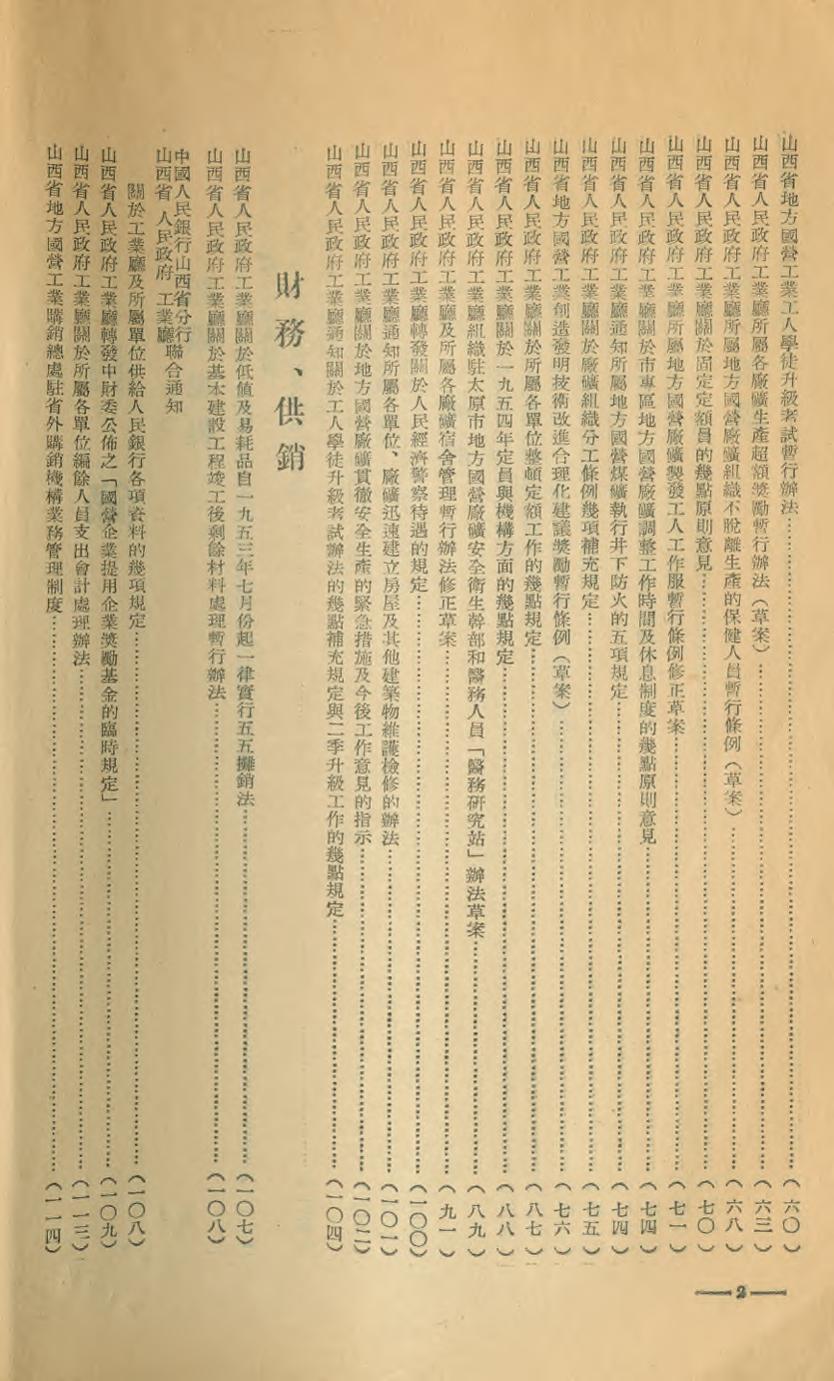 山西省地方國營工業工人學徒升級考試暫行辦法……（六〇）
山西省人民政府工業廳所屬各廠礦生產超額獎勵暫行辦法（草案）……（六三）
山西省人民政府工業廳所屬地方國營廠礦組織不脫離生產的保健人員暫行條例（草案）……（六八）
山西省人民政府工業廳關於固定定額員的幾點原則意見……（七〇）
山西省人民政府工業廳所屬地方國營廠礦製發工人工作服暫行條例修正草案……（七一）
山西省人民政府工業廳關於市專區地方國營廠礦調整工作時間及休息制度的幾點原則意見……（七四）
山西省人民政府工業廳通知所屬地方國營煤礦執行井下防火的五項規定……（七四）
山西省人民政府工業廳關於廠礦組織分工條例幾項補充規定……（七五）
山西省地方國營工業創造發明技術改進合理化建議獎勵暫行條例（草案）……（七六）
山西省人民政府工業廳關於所屬各單位整頓定額工作的幾點規定……（八七）
山西省人民政府工業廳關於一九五四年定員與機構方面的幾點規定……（八八）
山西省人民政府工業廳組織駐太原市地方國營廠礦安全衛生幹部和醫務人員「醫務研究站」辦法草案……（八九）
山西省人民政府工業廳及所屬各廠礦宿舍管理暫行辦法修正草案……（九一）
山西省人民政府工業廳轉發關於人民經濟警察待遇的規定……（一〇〇）
山西省人民政府工業廳通知所屬各單位、廠礦迅速建立房屋及其他建築物維護檢修的辦法……（一〇一）
山西省人民政府工業廳關於地方國營廠礦貫徹安全生產的緊急措施及今後工作意見的指示……（一〇二）
山西省人民政府工業廳通知關於工人學徒升級考試辦法的幾點補充規定與二季升級工作的幾點規定……（一〇四）
財務、供銷
山西省人民政府工業廳關於低值及易耗品自一九五三年七月份起一律實行五五攤銷法……（一〇七）
山西省人民政府工業廳關於基本建設工程竣工後剩餘材料處理暫行辦法……（一〇八）
中國人民銀行山西省分行
山西省人民政府工業廳聯合通知
關於工業廳及所屬單位供給人民銀行各項資料的幾項規定……（一〇八）
山西省人民政府工業廳轉發中財委公佈之「國營企業提用企業獎勵基金的臨時規定」……（一〇九）
山西省人民政府工業廳關於所屬各單位編餘人員支出會計處理辦法……（一一三）
山西省地方國營工業購銷總處駐省外購銷機構業務管理制度……（一一四）
— 2 —